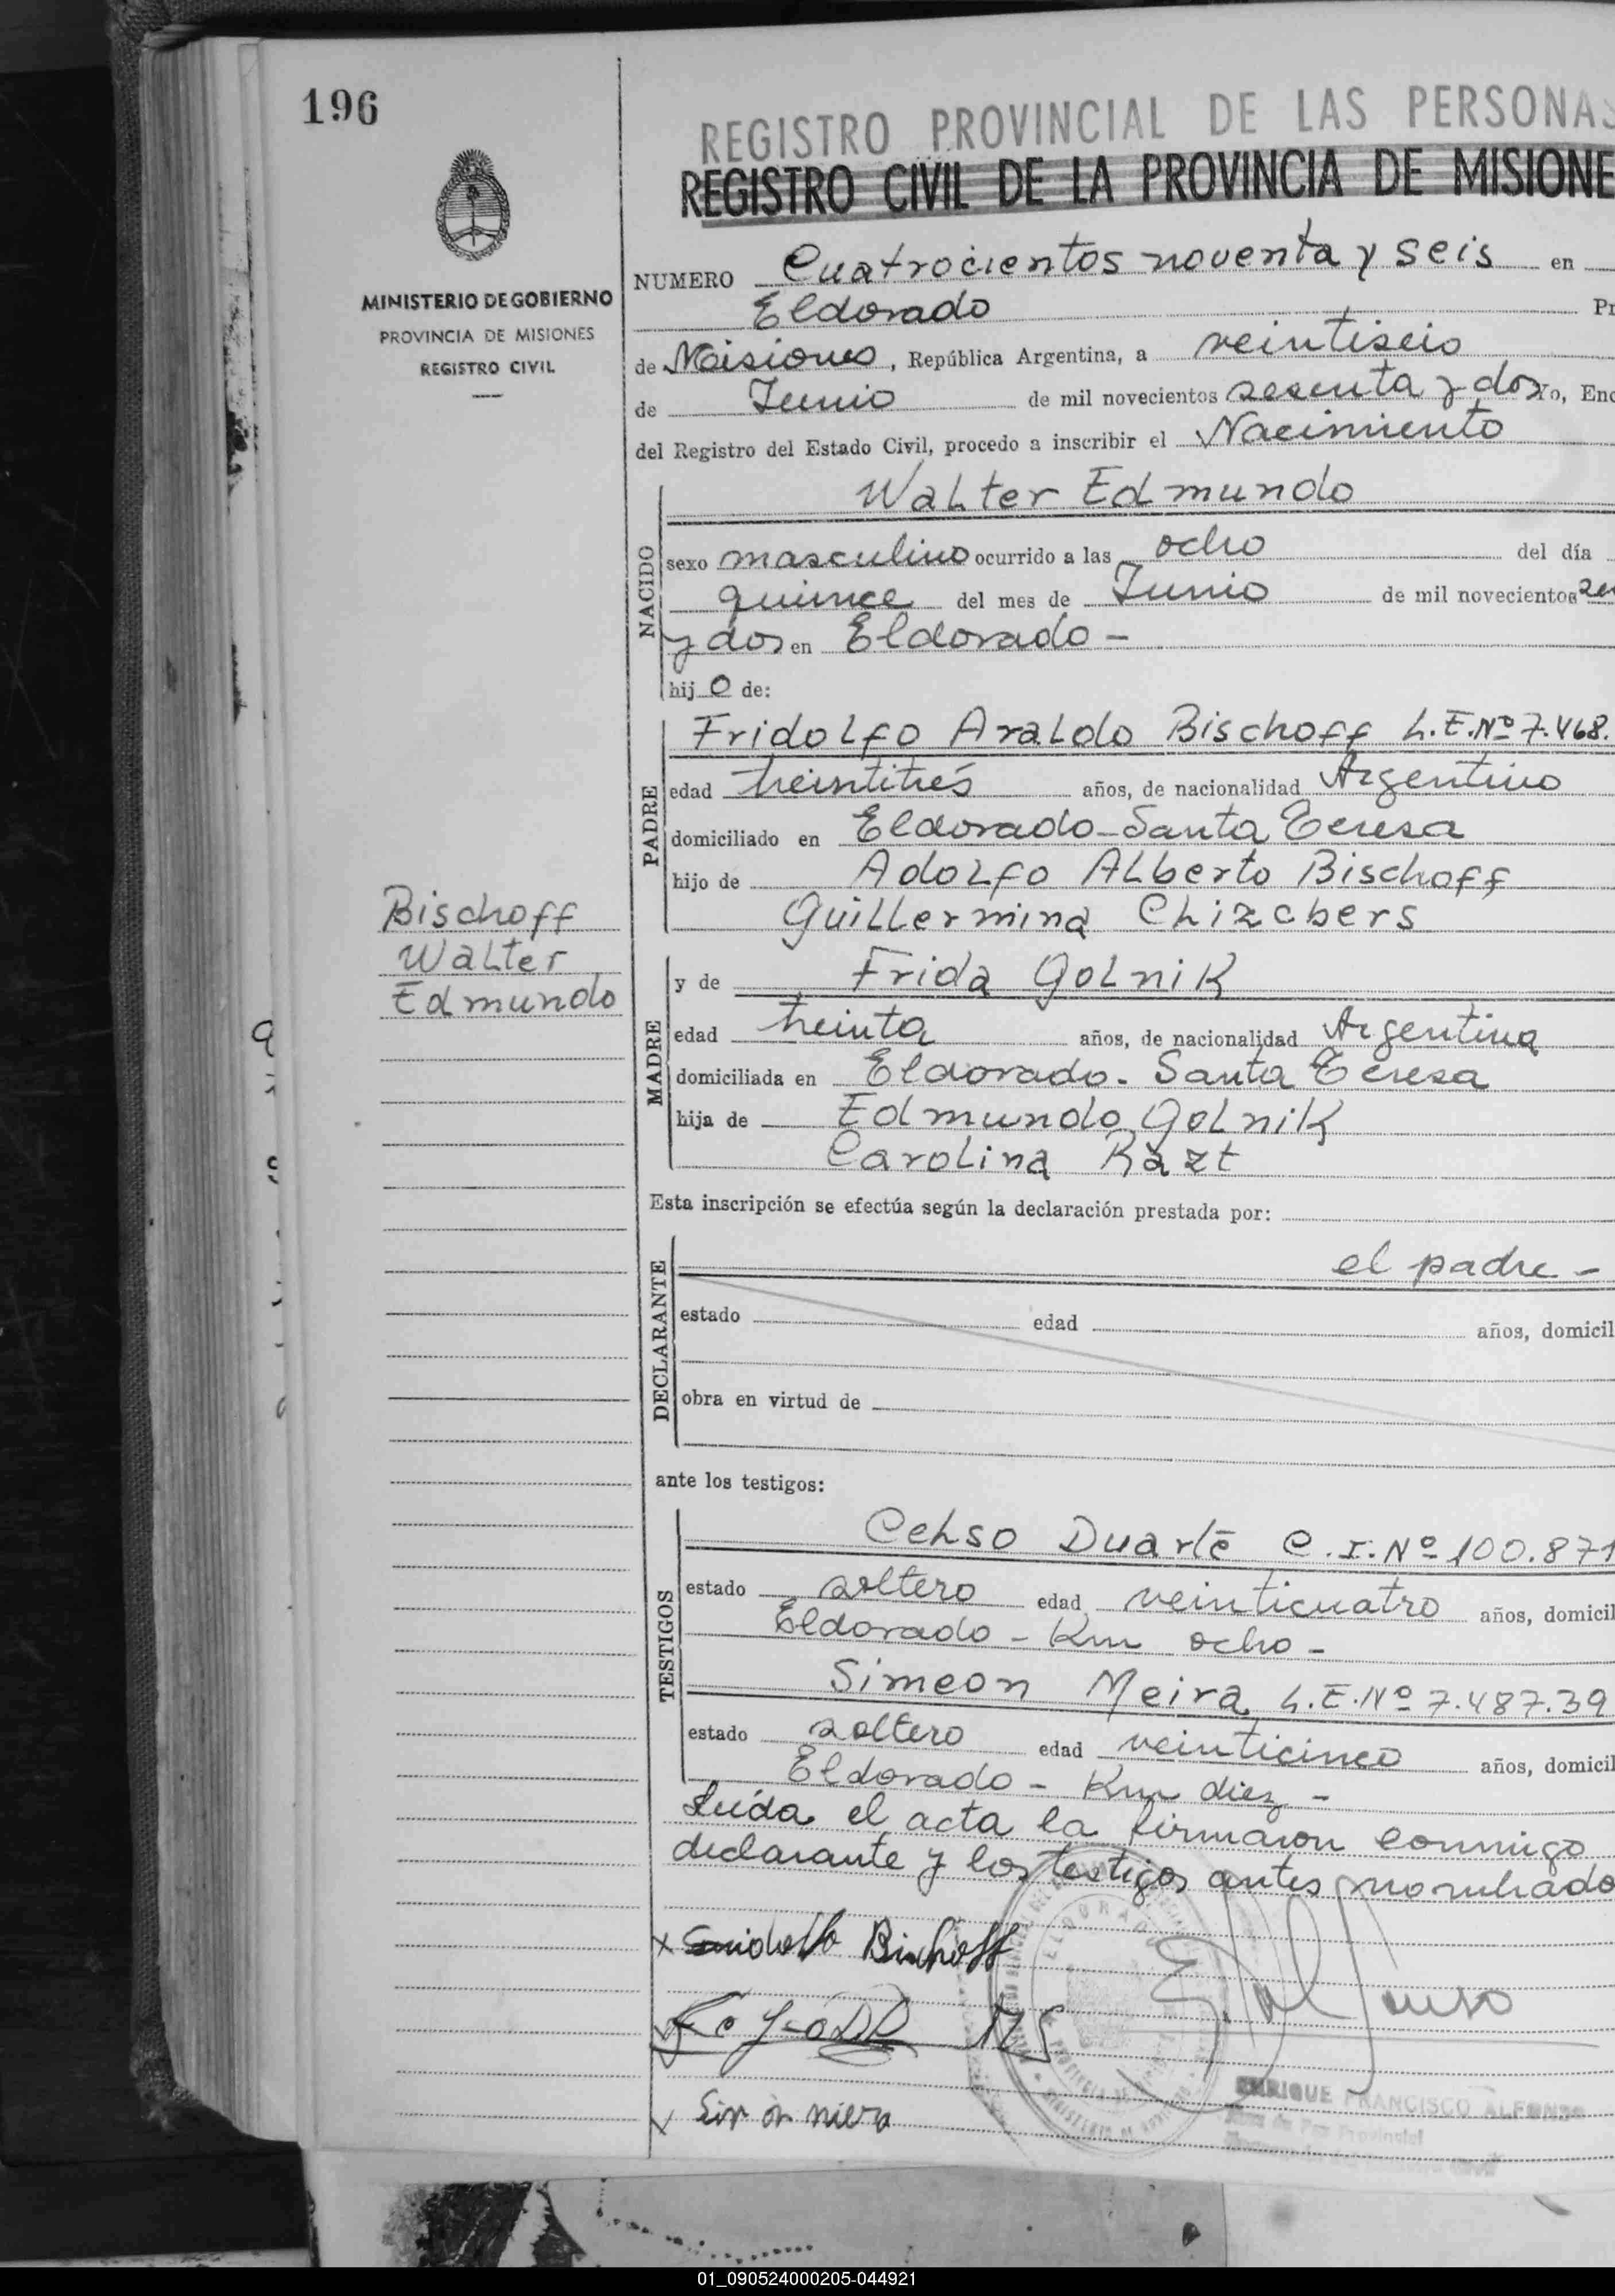 196
REGISTRO PROVINCIAL DE LAS PERSONAS
REGISTRO CIVIL DE LA PROVINCIA DE MISIONE
MINISTERIO DE GOBIERNO
PROVINCIA DE MISIONES
REGISTRO CIVIL
NUMERO Cuatrocientos noventa y seis en
Eldorado Pr
de Misiones, República Argentina, a veintiseis
de Junio de mil novecientos sesenta y dos Yo, Enc
del Registro del Estado Civil, procedo a inscribir el Nacimiento
NACIDO
Walter Edmundo
sexo masculino ocurrido a las ocho del día
quince del mes de Junio de mil novecientos se
y dos en Eldorado -
hijo de:
PADRE
Fridolfo Araldo Bischoff L.E.Nº 7.468.
edad treintitrés años, de nacionalidad Argentino
domiciliado en Eldorado - Santa Teresa
hijo de Adolfo Alberto Bischoff
Guillermina Chizcbers
Bischoff
Walter
Edmundo
MADRE
y de Frida Golnik
edad treinta años, de nacionalidad Argentina
domiciliada en Eldorado - Santa Teresa
hija de Edmundo Golnik
Carolina Razt
Esta inscripción se efectúa según la declaración prestada por:
DECLARANTE
el padre -
estado edad años, domicil
obra en virtud de
ante los testigos:
TESTIGOS
Celso Duarte C.I.Nº 100.871
estado soltero edad veinticuatro años, domicil
Eldorado - Km ocho -
Simeon Meira L.E.Nº 7.487.39
estado soltero edad veinticinco años, domicil
Eldorado - Km diez -
Leída el acta la firmaron conmigo
declarante y los testigos antes nombrado
Bischoff
ELDORADO
ENRIQUE FRANCISCO ALFONSO
Juez de Paz Provincial
01_090524000205-044921